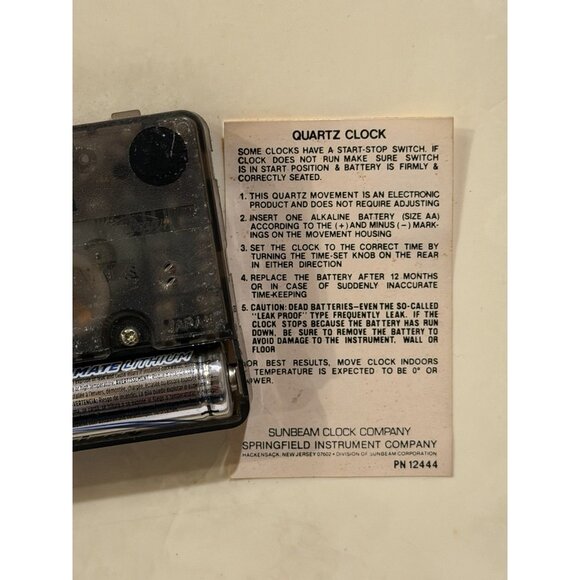 QUARTZ CLOCK
SOME CLOCKS HAVE A START-STOP SWITCH. IF
CLOCK DOES NOT RUN MAKE SURE SWITCH
IS IN START POSITION & BATTERY IS FIRMLY &
CORRECTLY SEATED.
1. THIS QUARTZ MOVEMENT IS AN ELECTRONIC
PRODUCT AND DOES NOT REQUIRE ADJUSTING
2. INSERT ONE ALKALINE BATTERY (SIZE AA)
ACCORDING TO THE (+) AND MINUS (-) MARK-
INGS ON THE MOVEMENT HOUSING
3. SET THE CLOCK TO THE CORRECT TIME BY
TURNING THE TIME-SET KNOB ON THE REAR
IN EITHER DIRECTION
4. REPLACE THE BATTERY AFTER 12 MONTHS
OR IN CASE OF SUDDENLY INACCURATE
TIME-KEEPING
5. CAUTION: DEAD BATTERIES-EVEN THE SO-CALLED
"LEAK PROOF" TYPE FREQUENTLY LEAK. IF THE
CLOCK STOPS BECAUSE THE BATTERY HAS RUN
DOWN, BE SURE TO REMOVE THE BATTERY TO
AVOID DAMAGE TO THE INSTRUMENT, WALL OR
FLOOR
OR BEST RESULTS, MOVE CLOCK INDOORS
TEMPERATURE IS EXPECTED TO BE 0° OR
OWER.
SUNBEAM CLOCK COMPANY
SPRINGFIELD INSTRUMENT COMPANY
HACKENSACK, NEW JERSEY 07602 • DIVISION OF SUNBEAM CORPORATION
PN 12444
MATE LITHIUM